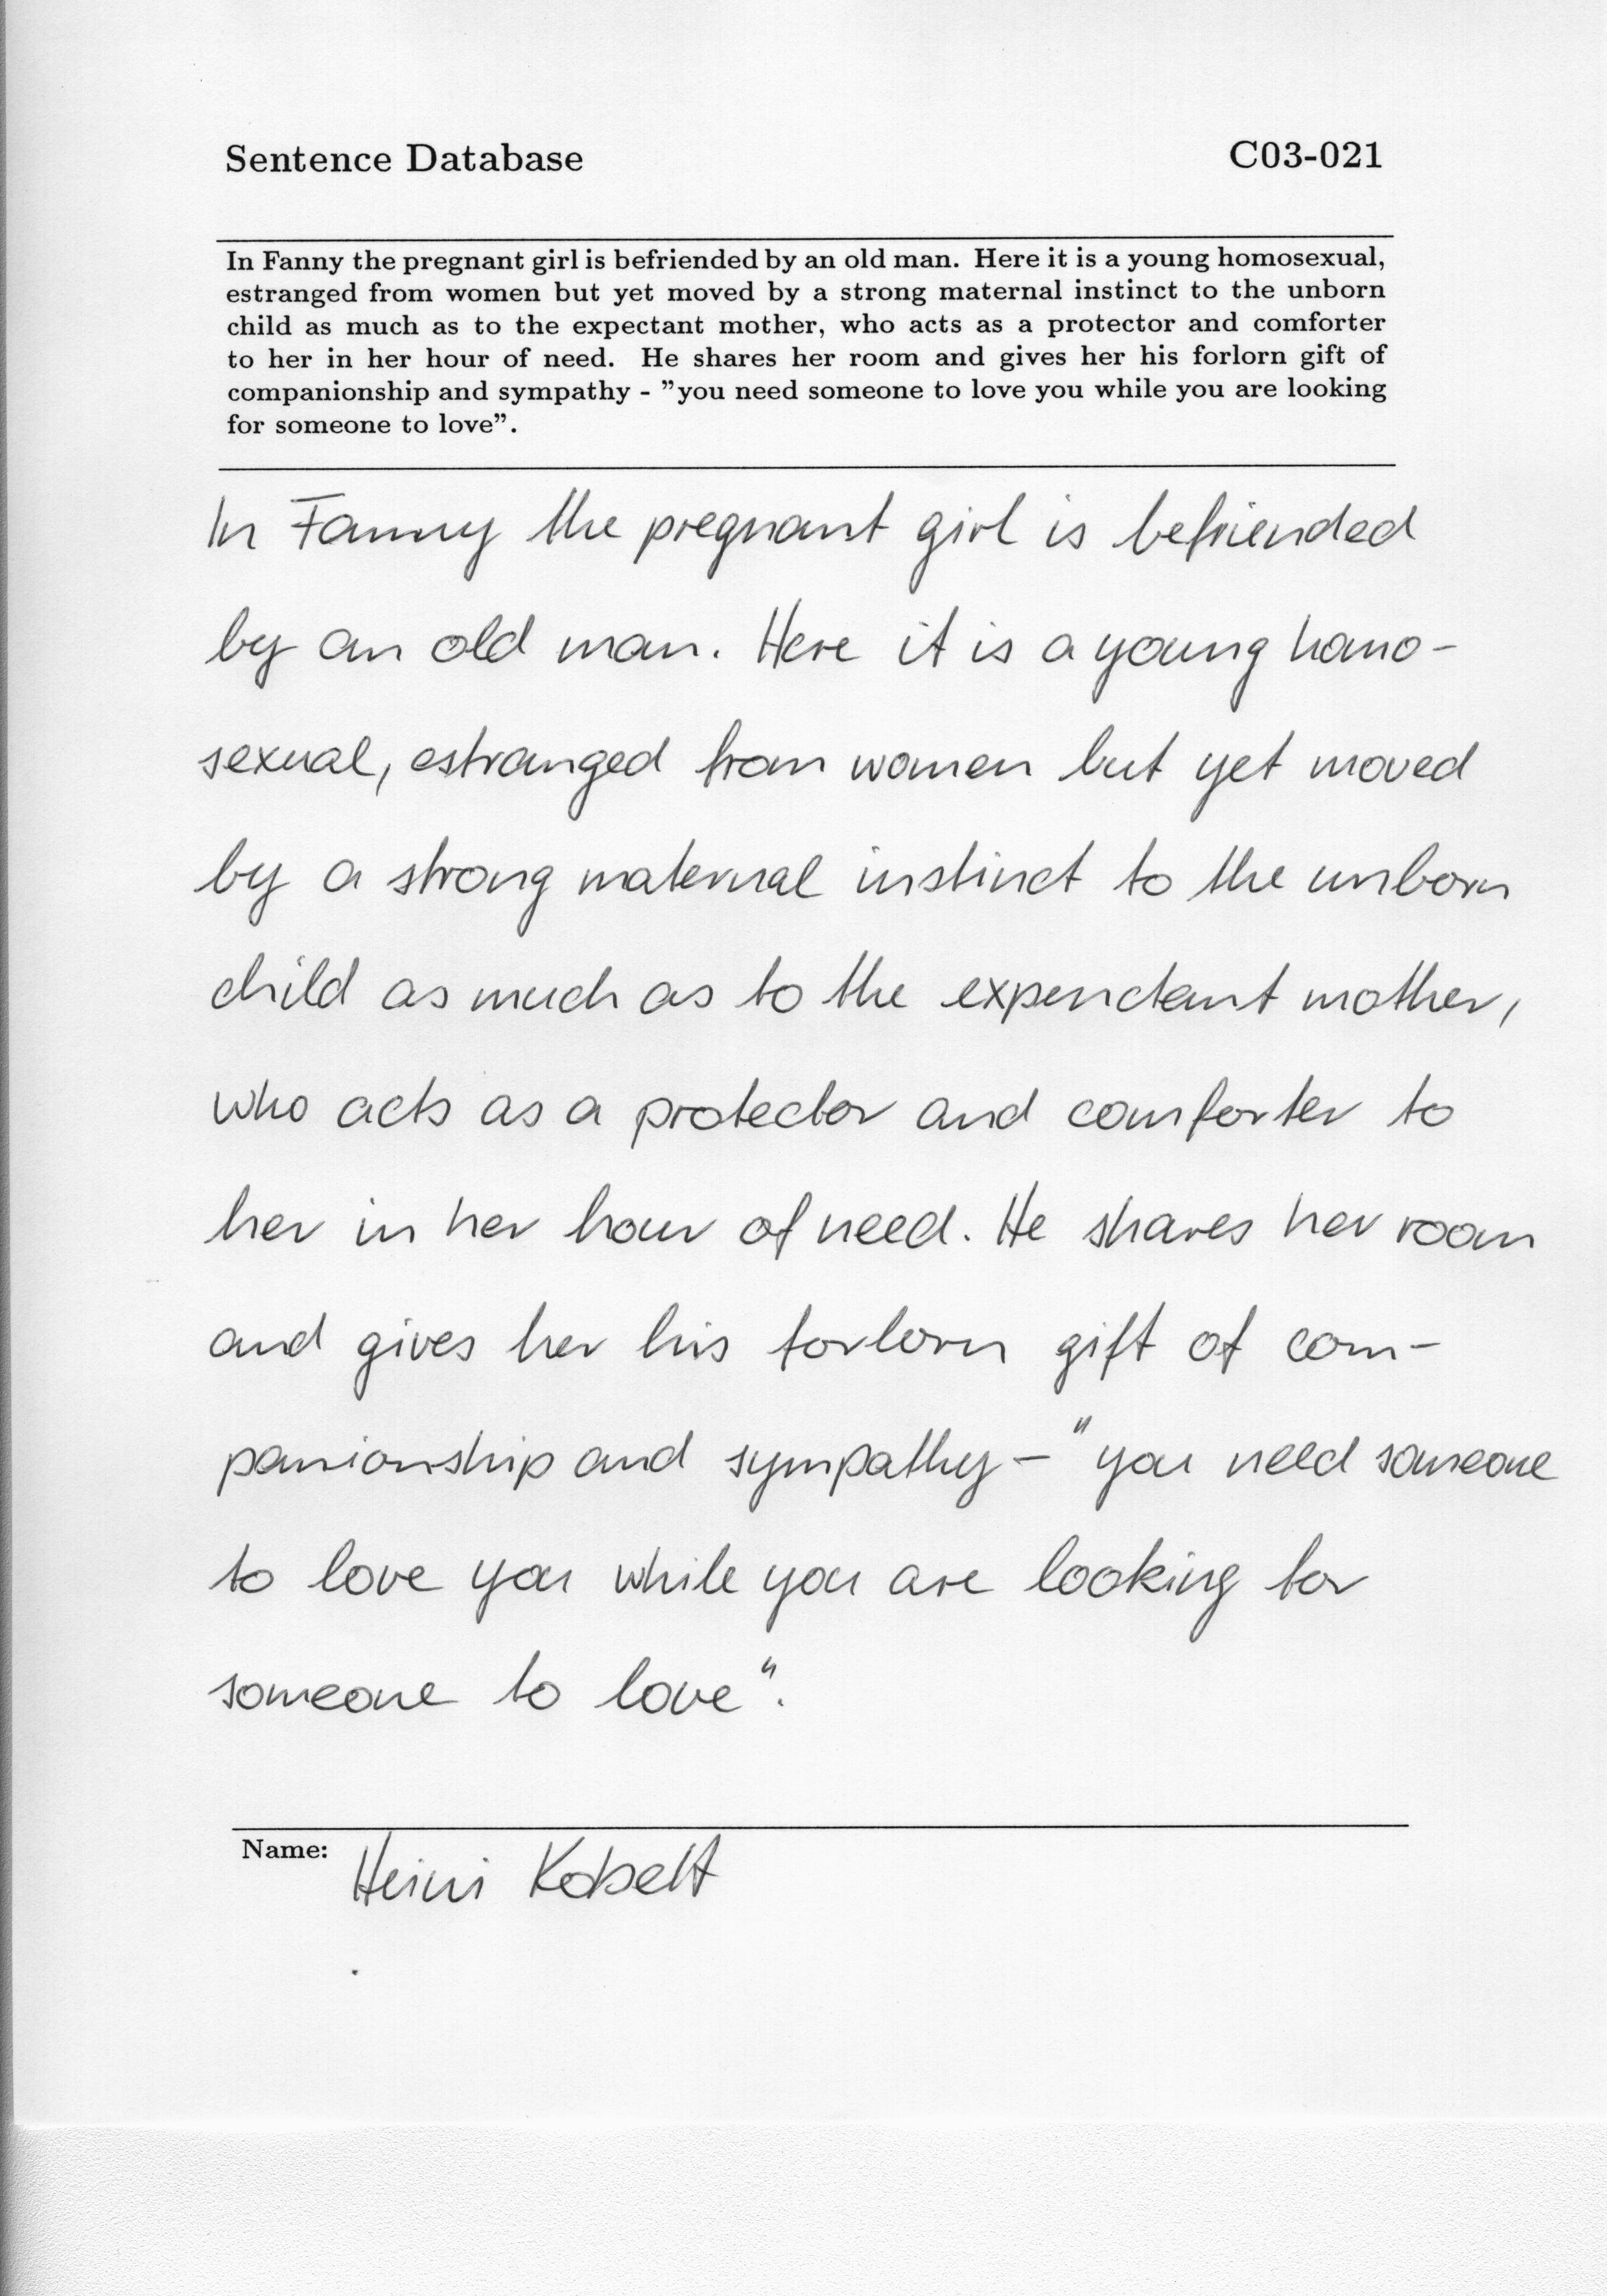 Sentence Database C03-021
In Fanny the pregnant girl is befriended by an old man. Here it is a young homosexual,
estranged from women but yet moved by a strong maternal instinct to the unborn
child as much as to the expectant mother, who acts as a protector and comforter
to her in her hour of need. He shares her room and gives her his forlorn gift of
companionship and sympathy - "you need someone to love you while you are looking
for someone to love".
In Fanny the pregnant girl is befriended
by an old man. Here it is a young homo-
sexual, estranged from women but yet moved
by a strong maternal instinct to the unborn
child as much as to the expenctant mother,
who acts as a protector and comforter to
her in her hour of need. He shares her room
and gives her his forlorn gift of com-
panionship and sympathy - "you need someone
to love you while you are looking for
someone to love".
Name: Heini Kobelt